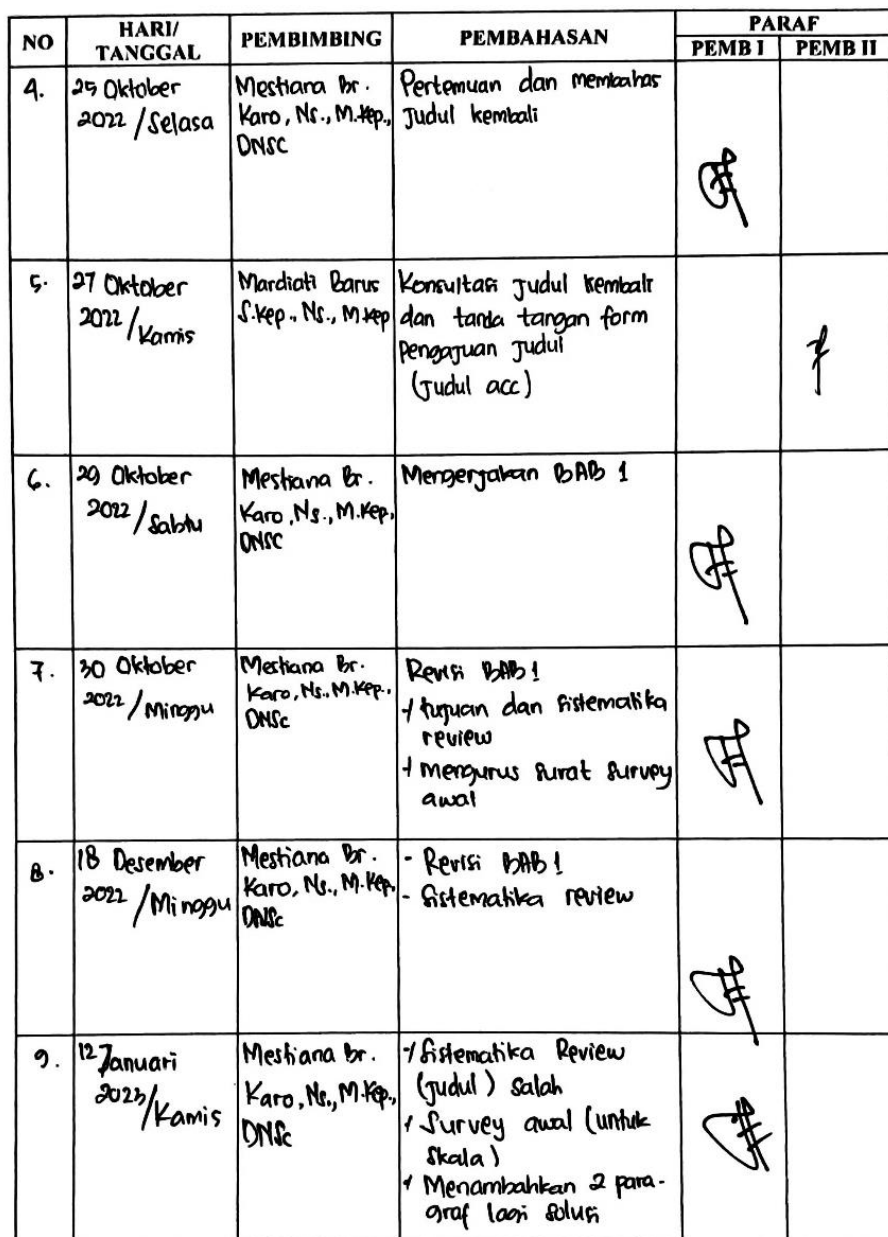 NO HARI/ TANGGAL PEMBIMBING PEMBAHASAN PARAF
PEMB I PEMB II
4. 25 Oktober 2022 / Selasa
Mestiana Br.
Karo, Ns., M.Kep.,
DNSC
Pertemuan dan membahas
Judul kembali
5. 27 Oktober
2022 / Kamis
Mardiati Barus
S.Kep., Ns., M.Kep
Konsultasi Judul kembali
dan tanda tangan form
Pengajuan Judul
(Judul acc)
6. 29 Oktober
2022 / Sabtu
Mestiana Br.
Karo, Ns., M.Kep,
DNSC
Mengerjakan BAB 1
7. 30 Oktober
2022 / Minggu
Mestiana Br.
Karo, Ns., M.Kep.,
DNSc
Revisi BAB 1
- tujuan dan sistematika
review
- Mengurus surat survey
awal
8. 18 Desember
2022 / Minggu
Mestiana Br.
Karo, Ns., M.Kep,
DNSc
- Revisi BAB 1
- Sistematika review
9. 12 Januari
2023 / Kamis
Mestiana Br.
Karo, Ns., M.Kep.,
DNSc
- Sistematika Review
(Judul) salah
- Survey awal (untuk
skala)
- Menambahkan 2 para-
graf lagi solusi